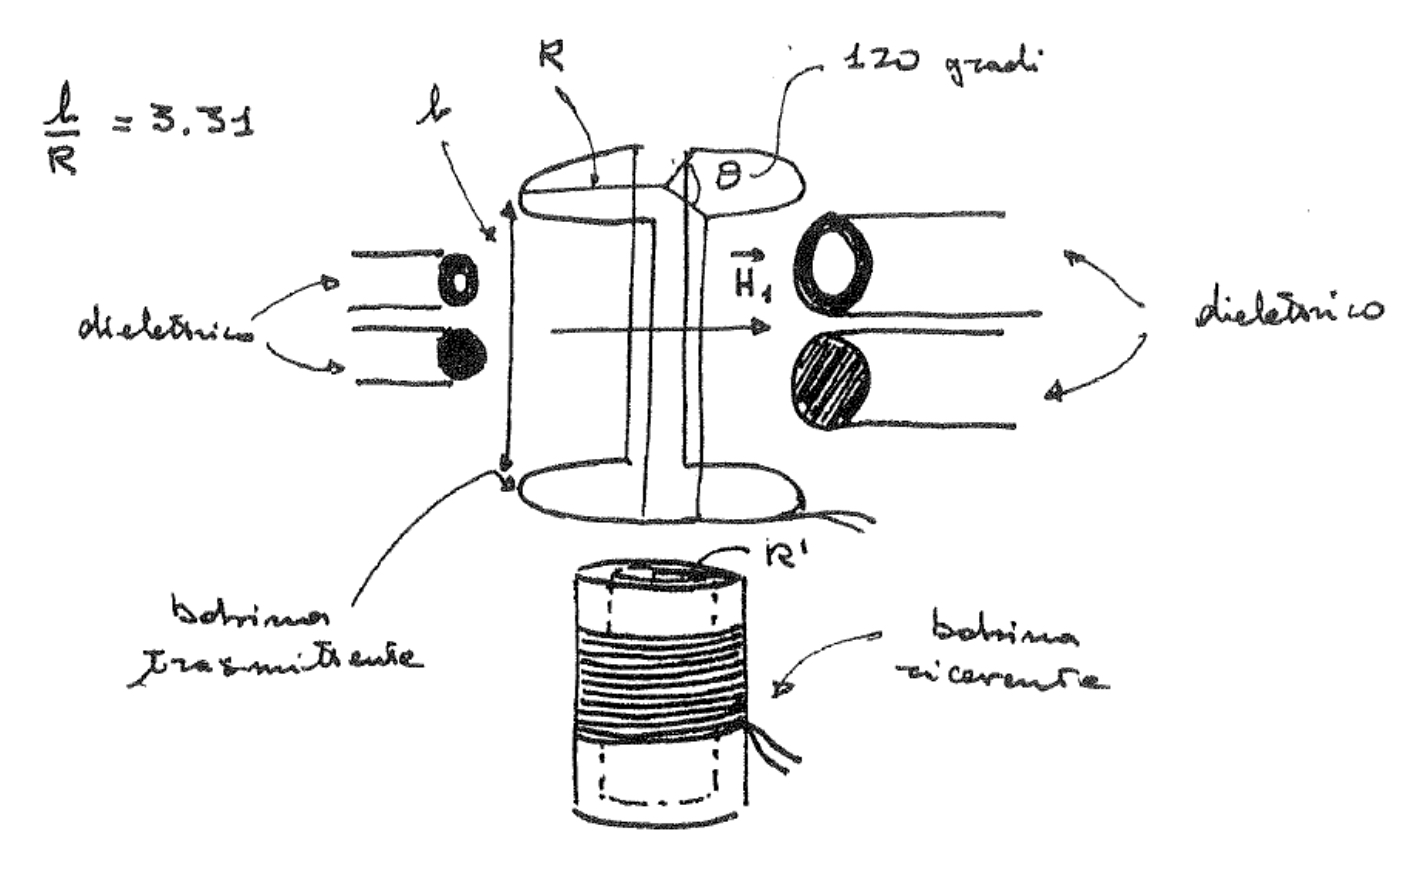 R
120 gradi
l
l/R = 3.31
θ
H₁
dielettrico
dielettrico
R'
bobina
trasmittente
bobina
ricevente